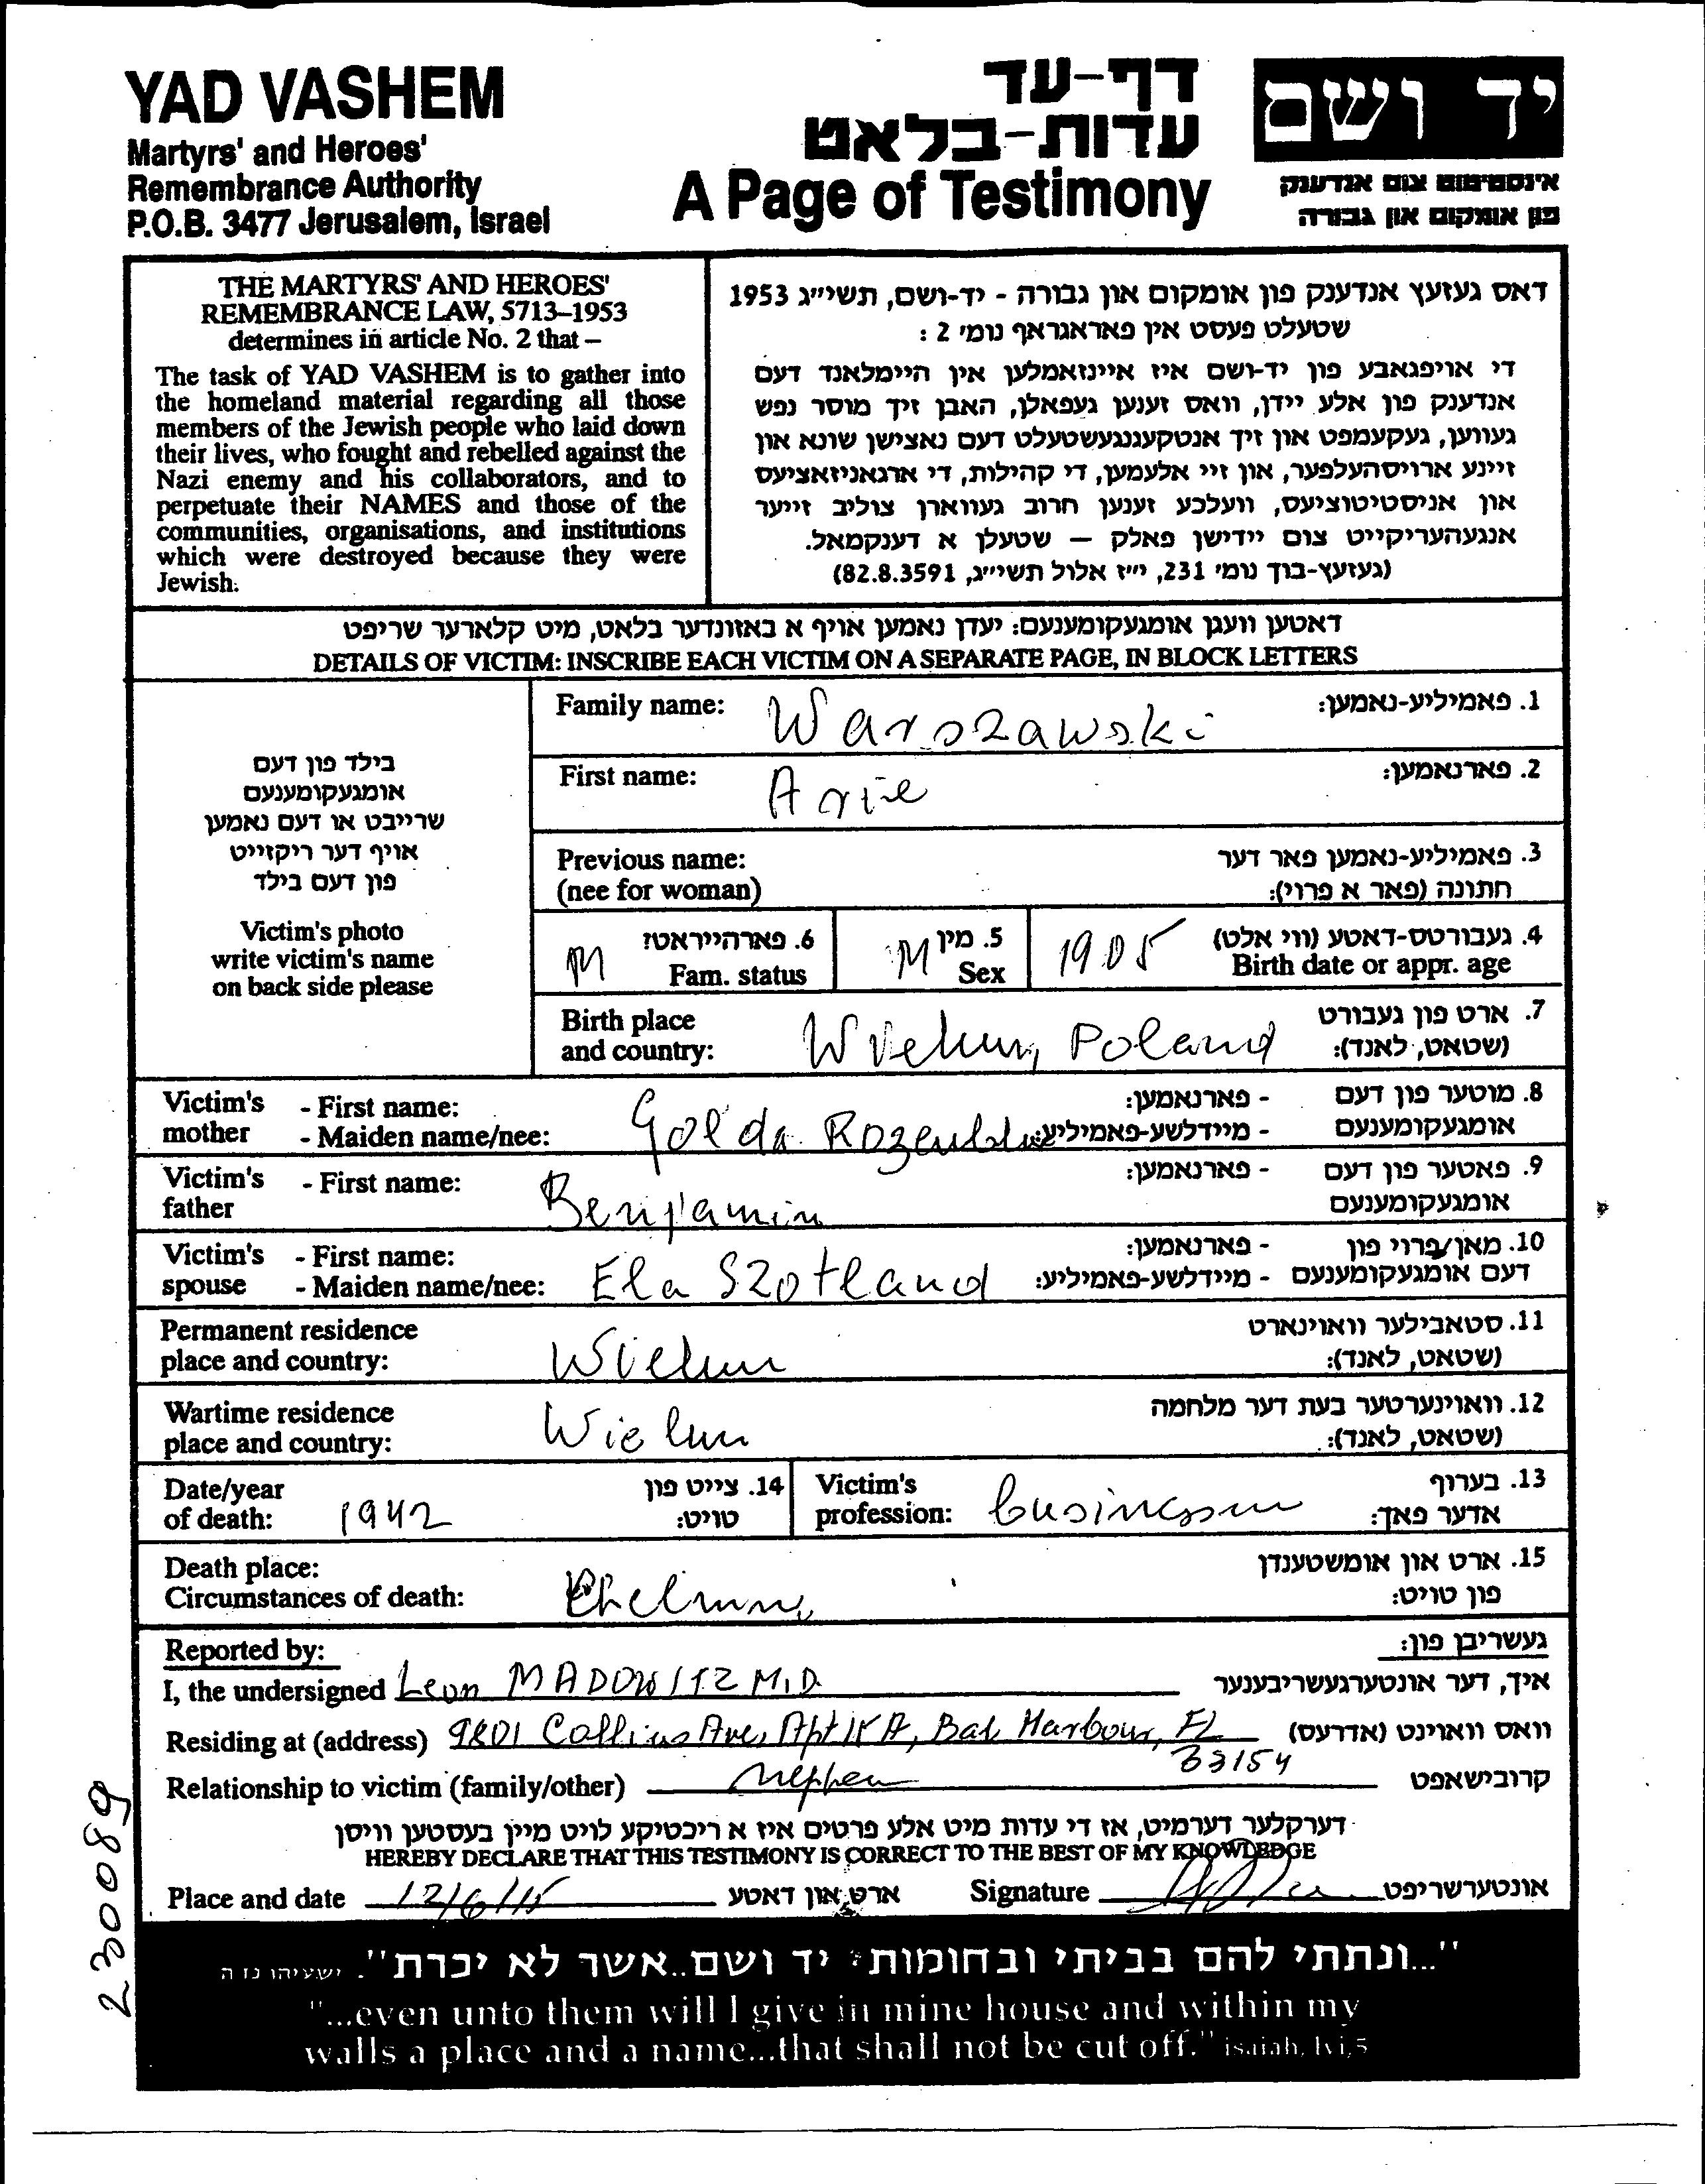 YAD VASHEM
Martyrs' and Heroes'
Remembrance Authority
P.O.B. 3477 Jerusalem, Israel
דף-עד
עדות-בלאט
A Page of Testimony
יד ושם
אינסטיטוט צום אנדענק
פון אומקום און גבורה
THE MARTYRS' AND HEROES'
REMEMBRANCE LAW, 5713–1953
determines in article No. 2 that –
The task of YAD VASHEM is to gather into
the homeland material regarding all those
members of the Jewish people who laid down
their lives, who fought and rebelled against the
Nazi enemy and his collaborators, and to
perpetuate their NAMES and those of the
communities, organisations, and institutions
which were destroyed because they were
Jewish.
דאס געזעץ אנדענק פון אומקום און גבורה - יד-ושם, תשי״ג 1953
שטעלט פעסט אין פאראגראף נומ׳ 2 :
די אויפגאבע פון יד-ושם איז איינזאמלען אין היימלאנד דעם
אנדענק פון אלע יידן, וואס זענען געפאלן, האבן זיך מוסר נפש
געווען, געקעמפט און זיך אנטקעגנגעשטעלט דעם נאצישן שונא און
זיינע ארויסהעלפער, און זיי אלעמען, די קהילות, די ארגאניזאציעס
און אניסטיטוציעס, וועלכע זענען חרוב געווארן צוליב זייער
אנגעהעריקייט צום יידישן פאלק – שטעלן א דענקמאל.
(געזעץ-בוך נומ׳ 231, י״ז אלול תשי״ג, 82.8.3591)
דאטען וועגן אומגעקומענעם: יעדן נאמען אויף א באזונדער בלאט, מיט קלארער שריפט
DETAILS OF VICTIM: INSCRIBE EACH VICTIM ON A SEPARATE PAGE, IN BLOCK LETTERS
בילד פון דעם
אומגעקומענעם
שרייבט או דעם נאמען
אויף דער ריקזייט
פון דעם בילד
Victim's photo
write victim's name
on back side please
Family name: Warszawski 1. פאמיליע-נאמען:
First name: Arie 2. פארנאמען:
Previous name: 3. פאמיליע-נאמען פאר דער
(nee for woman) חתונה (פאר א פרוי):
M 6. פארהייראט? M 5. מין 1905 4. געבורטס-דאטע (ווי אלט)
Fam. status Sex Birth date or appr. age
Birth place 7. ארט פון געבורט
and country: Wielun, Poland (שטאט, לאנד):
Victim's - First name: - פארנאמען: 8. מוטער פון דעם
mother - Maiden name/nee: Golda - מיידלשע-פאמיליע: אומגעקומענעם
Victim's - First name: - פארנאמען: 9. פאטער פון דעם
father Benjamin אומגעקומענעם
Victim's - First name: - פארנאמען: 10. מאן/פרוי פון
spouse - Maiden name/nee: Ela Szotland - מיידלשע-פאמיליע: דעם אומגעקומענעם
Permanent residence 11. סטאבילער וואוינארט
place and country: Wielun (שטאט, לאנד):
Wartime residence 12. וואוינערטער בעת דער מלחמה
place and country: Wielun (שטאט, לאנד):
Date/year 14. צייט פון Victim's 13. בערוף
of death: 1942 טויט: profession: אדער פאך:
Death place: 15. ארט און אומשטענדן
Circumstances of death: Chelmno פון טויט:
Reported by: געשריבן פון:
I, the undersigned Leon M.D. איך, דער אונטערגעשריבענער
Residing at (address) 9801 Collins Ave, Apt A, Bal Harbour, FL וואס וואוינט (אדרעס)
33154
Relationship to victim (family/other) nephew קרובישאפט
דערקלער דערמיט, אז די עדות מיט אלע פרטים איז א ריכטיקע לויט מיין בעסטען וויסן
HEREBY DECLARE THAT THIS TESTIMONY IS CORRECT TO THE BEST OF MY KNOWLEDGE
Place and date ארט און דאטע Signature אונטערשריפט
230089
"...ונתתי להם בביתי ובחומותי יד ושם..אשר לא יכרת". ישעיהו נו ה
"...even unto them will I give in mine house and within my
walls a place and a name...that shall not be cut off." isaiah, lvi,5